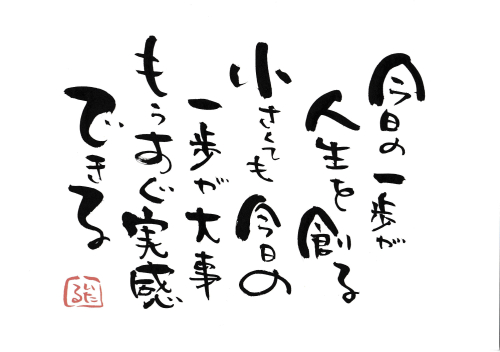 今日の一歩が
人生を創る
小さくても今日の
一歩が大事
もうすぐ実感
できる